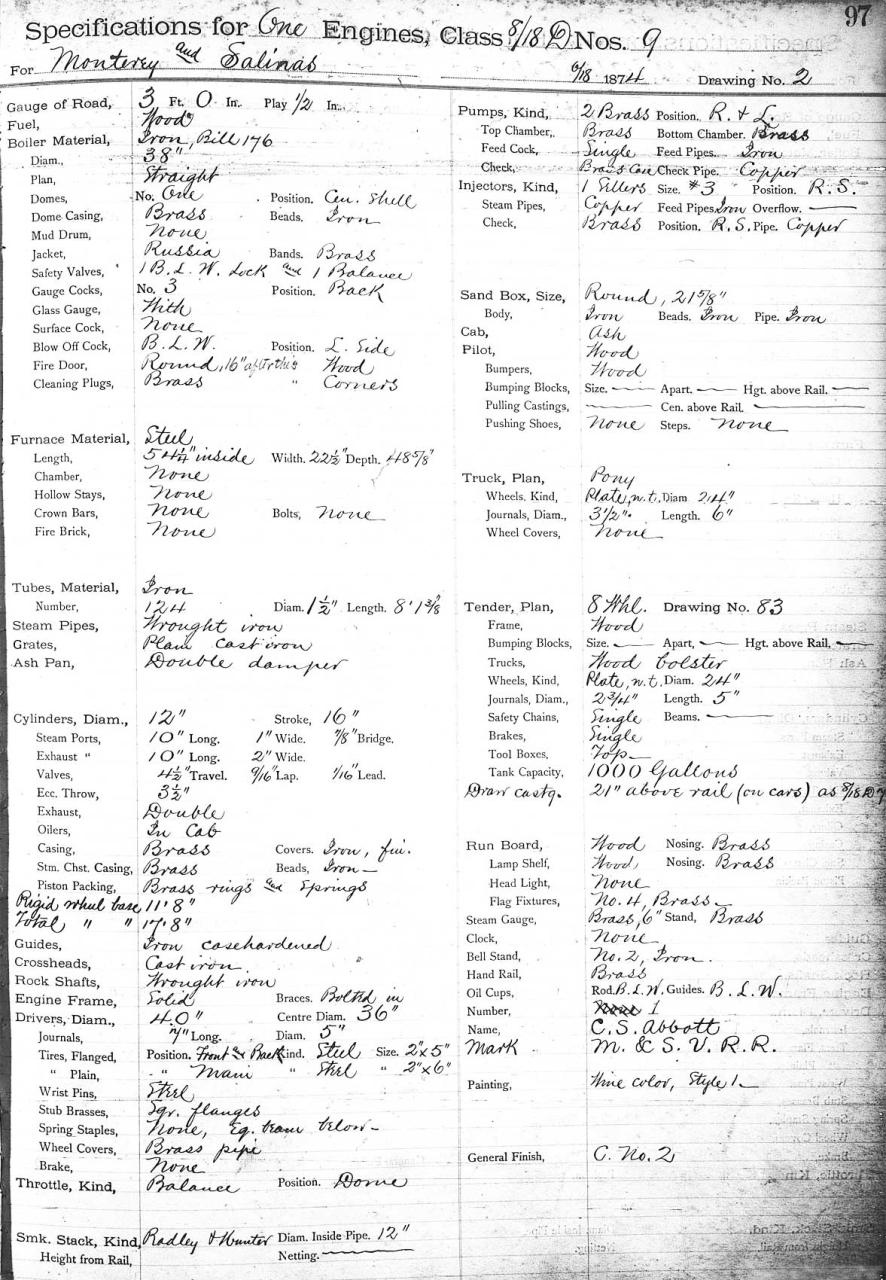 97
Specifications for One Engines, Class 8/18 D Nos. 9
For Monterey and Salinas 6/18 1874 Drawing No. 2
Gauge of Road, 3 Ft. 0 In. Play 1/2 In.
Fuel, Wood
Boiler Material, Iron, Bill 176
Diam., 38"
Plan, Straight
Domes, No. One Position. Cen. Shell
Dome Casing, Brass Beads, Iron
Mud Drum, None
Jacket, Russia Bands. Brass
Safety Valves, 1 B. L. W. Lock and 1 Balance
Gauge Cocks, No. 3 Position. Back
Glass Gauge, With
Surface Cock, None
Blow Off Cock, B. L. W. Position. L. Side
Fire Door, Round, 16" Wood
Cleaning Plugs, Brass " Corners
Furnace Material, Steel
Length, 54 1/4" inside Width. 22 1/2" Depth. 48 5/8"
Chamber, None
Hollow Stays, None
Crown Bars, None Bolts, None
Fire Brick, None
Tubes, Material, Iron
Number, 124 Diam. 1 1/2" Length. 8' 1 3/8"
Steam Pipes, Wrought iron
Grates, Plain cast iron
Ash Pan, Double damper
Cylinders, Diam., 12" Stroke, 16"
Steam Ports, 10" Long. 1" Wide. 7/8" Bridge.
Exhaust " 10" Long. 2" Wide.
Valves, 4 1/2" Travel. 9/16" Lap. 1/16" Lead.
Ecc. Throw, 3 1/2"
Exhaust, Double
Oilers, In Cab
Casing, Brass Covers. Iron, fin.
Stm. Chst. Casing, Brass Beads, Iron
Piston Packing, Brass rings and Springs
Rigid wheel base 11' 8"
Total " " 17' 8"
Guides, Iron casehardened
Crossheads, Cast iron
Rock Shafts, Wrought iron
Engine Frame, Solid Braces. Bolted in
Drivers, Diam., 40" Centre Diam. 36"
Journals, 7" Long. Diam. 5"
Tires, Flanged, Position. Front & Back Kind. Steel Size. 2" x 5"
" Plain, " Main " Steel " 2" x 6"
Wrist Pins, Steel
Stub Brasses, Sqr. flanges
Spring Staples, None, Eq. beam below
Wheel Covers, Brass pipe
Brake, None
Throttle, Kind, Balance Position. Dome
Smk. Stack, Kind, Radley & Hunter Diam. Inside Pipe. 12"
Height from Rail, Netting.
Pumps, Kind, 2 Brass Position. R. & L.
Top Chamber, Brass Bottom Chamber. Brass
Feed Cock, Single Feed Pipes. Iron
Check, Brass Case Check Pipe. Copper
Injectors, Kind, 1 Sellers Size. #3 Position. R. S.
Steam Pipes, Copper Feed Pipes. Iron Overflow.
Check, Brass Position. R. S. Pipe. Copper
Sand Box, Size, Round, 21 5/8"
Body, Iron Beads. Iron Pipe. Iron
Cab, Ash
Pilot, Wood
Bumpers, Wood
Bumping Blocks, Size. Apart. Hgt. above Rail.
Pulling Castings, Cen. above Rail.
Pushing Shoes, None Steps. None
Truck, Plan, Pony
Wheels, Kind, Plate, w. t. Diam 24"
Journals, Diam., 3 1/2" Length. 6"
Wheel Covers, None
Tender, Plan, 8 Whl. Drawing No. 83
Frame, Wood
Bumping Blocks, Size. Apart, Hgt. above Rail,
Trucks, Wood bolster
Wheels, Kind, Plate, w. t. Diam. 24"
Journals, Diam., 2 3/4" Length. 5"
Safety Chains, Single Beams.
Brakes, Single
Tool Boxes, Top
Tank Capacity, 1000 Gallons
Draw castg. 21" above rail (on cars) as 8/18 D 7
Run Board, Wood Nosing. Brass
Lamp Shelf, Wood, Nosing. Brass
Head Light, None
Flag Fixtures, No. 4, Brass
Steam Gauge, Brass, 6" Stand, Brass
Clock, None
Bell Stand, No. 2, Iron.
Hand Rail, Brass
Oil Cups, Rod. B. L. W. Guides. B. L. W.
Number, None 1
Name, C. S. Abbott
Mark M. & S. V. R. R.
Painting, Wine color, Style 1
General Finish, C. No. 2